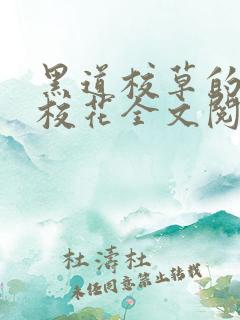 黑道校草的
校花全文阅
杜濤杜
未经同意禁止转载